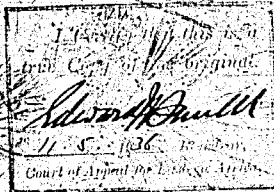 I Certify that this is a
true Copy of the original.
Edward
11 - 5 - 1936
Court of Appeal for Eastern Africa